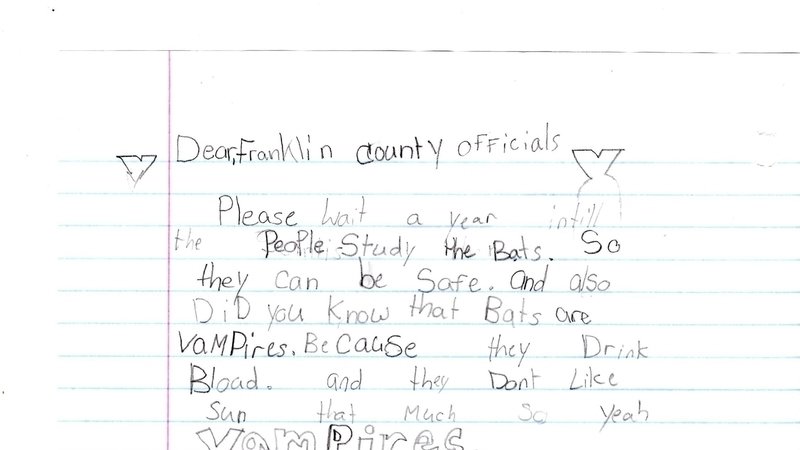 Dear, Franklin county officials
Please wait a year intill
the People Study the Bats. So
they can be Safe. and also
DiD you know that Bats are
VamPires. BeCause they Drink
Bload. and they Dont Like
Sun that Much So yeah
VamPires.